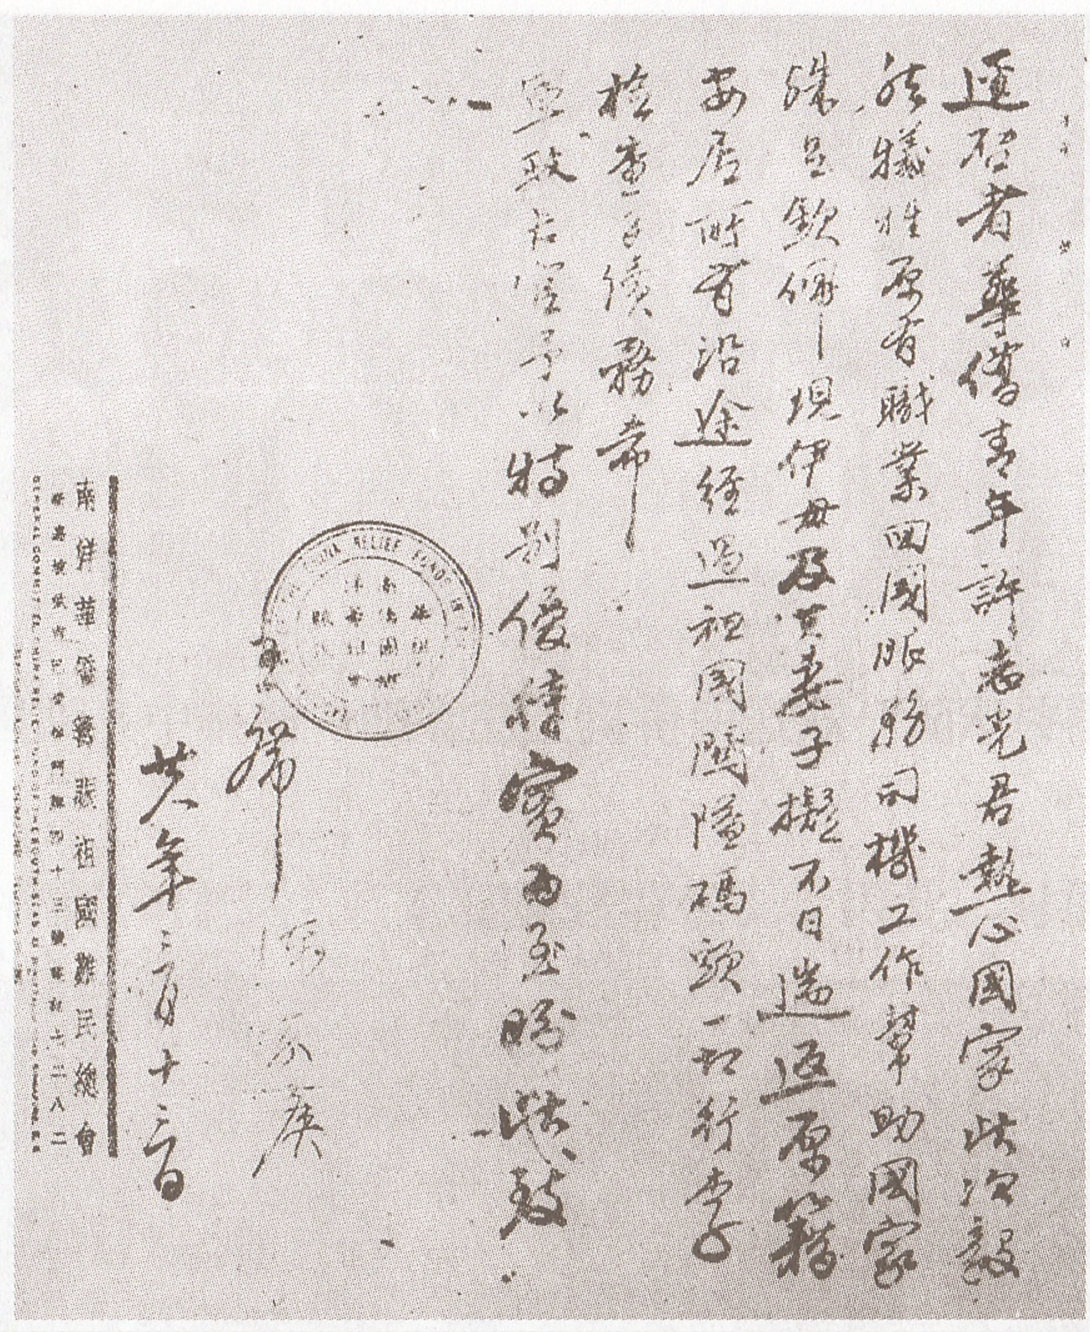 逕啓者華僑青年許志光君熱心國家此次毅
然犧牲原有職業回國服務司機工作幫助國家
殊足欽佩現伊母及其妻子擬不日遄返原籍
安居所有沿途經過祖國關隘碼頭一切行李
檢查手續務希
軍政長官予以特別優待實為至盼此致
CHINA RELIEF FUND
主席 陳嘉庚
廿八年三月十三日
南洋華僑籌賑祖國難民總會